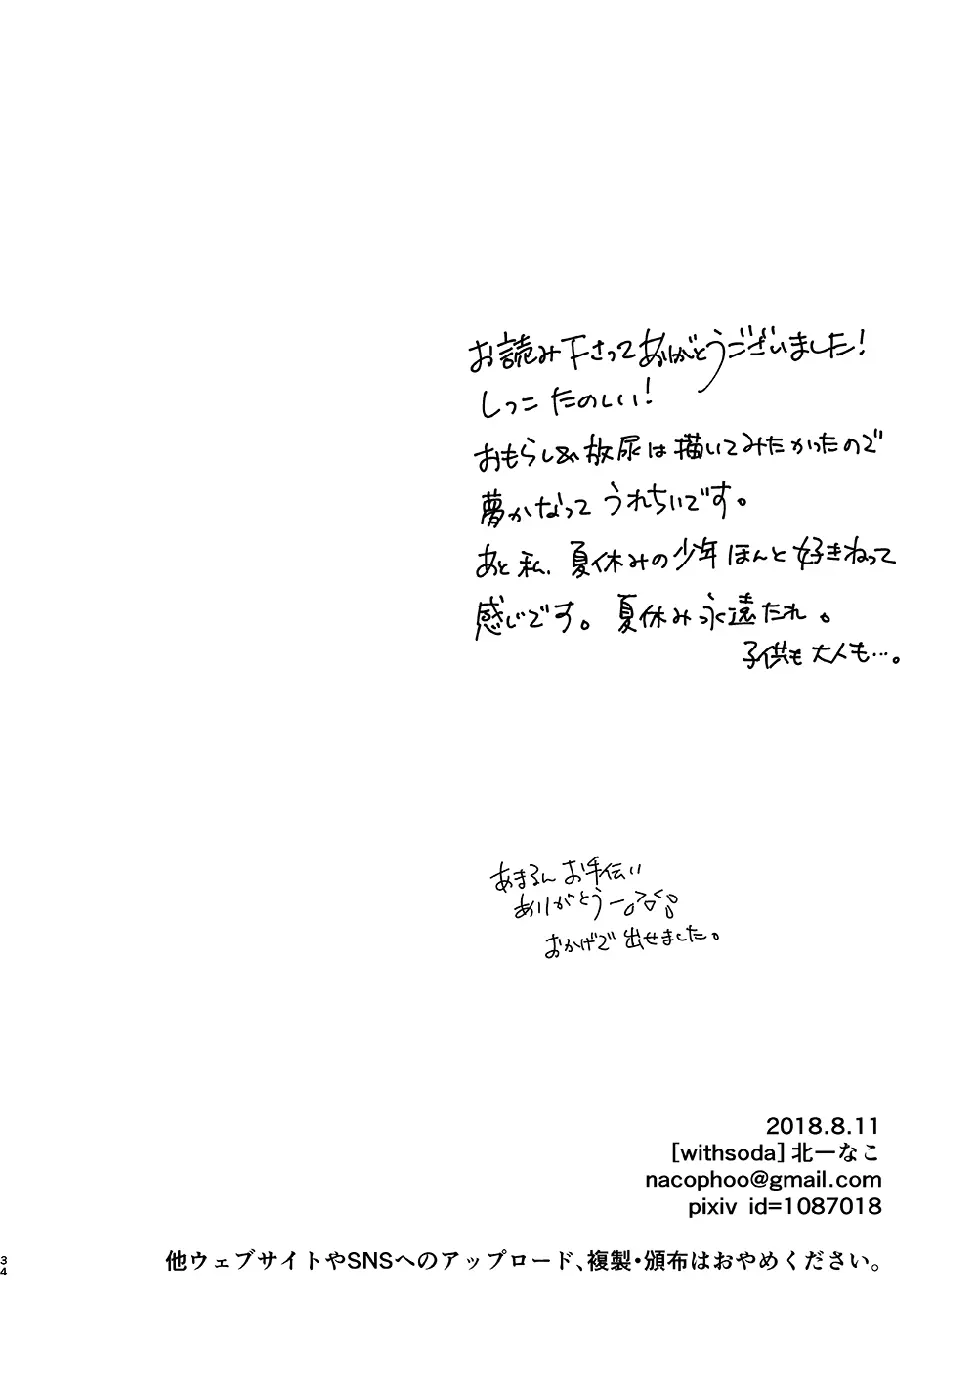 お読み下さってありがとうございました!
しっこ たのしい!
おもらし&放尿は描いてみたかったので
夢かなって うれちいです。
あと 私、夏休みの少年 ほんと好きねって
感じです。夏休み永遠たれ。
子供も大人も…。
あまるん お手伝い
ありがとうー
おかげで 出せました。
2018.8.11
[withsoda]北一なこ
nacophoo@gmail.com
pixiv id=1087018
他ウェブサイトやSNSへのアップロード、複製・頒布はおやめください。
34